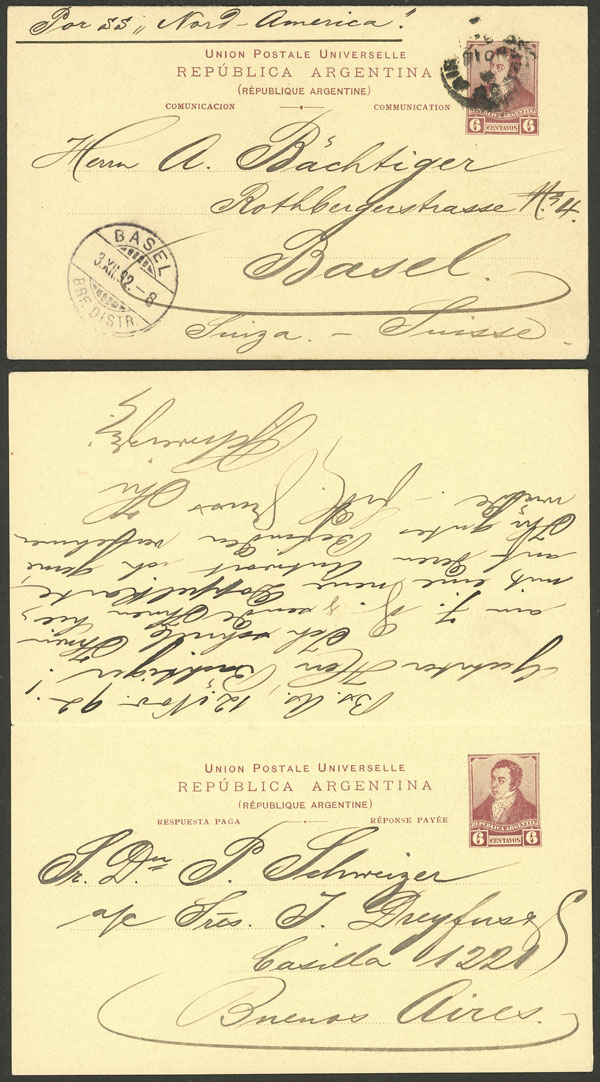 Por SS „Nord-America".
UNION POSTALE UNIVERSELLE
REPÚBLICA ARGENTINA
(RÉPUBLIQUE ARGENTINE)
COMUNICACION COMMUNICATION
REPUBLICA ARGENTINA
6 CENTAVOS 6
Herrn A. Bächtiger
Rothbergerstrasse No 4.
Basel.
Suiza. - Suisse.
BASEL
3.XII.92.-8
BRF. DISTR.
Bs. As. 12. Nov. 92.
Geehrter Herr Bächtiger!
Ich
mit eine neue Doppelkarte,
auf Antwort ich gerne
Ihr gutes Befinden vernehmen
Gruss Ihr
Schweizer
UNION POSTALE UNIVERSELLE
REPÚBLICA ARGENTINA
(RÉPUBLIQUE ARGENTINE)
RESPUESTA PAGA RÉPONSE PAYÉE
REPUBLICA ARGENTINA
6 CENTAVOS 6
Sr. Dn P. Schweizer
a/c Sres. I. Dreyfus
Casilla 1221
Buenos Aires.